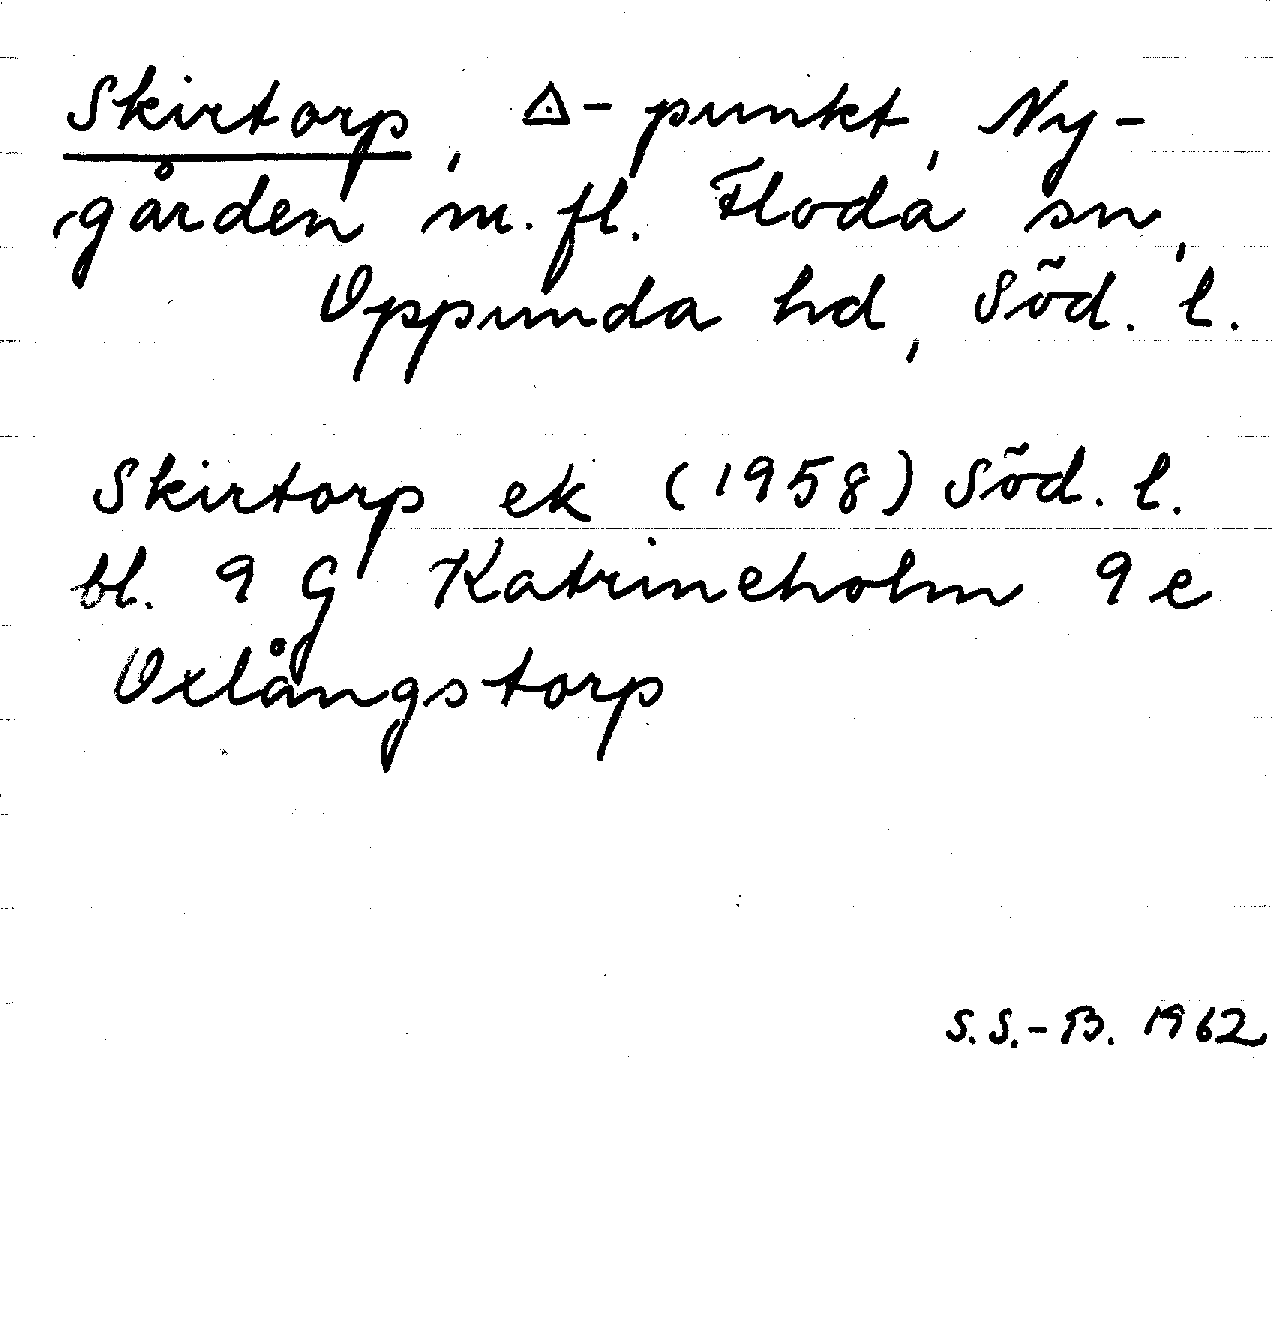 Skirtorp, ◬-punkt, Ny-
gården m.fl. Floda sn,
Oppunda hd, Söd. l.
Skirtorp ek (1958) Söd. l.
bl. 9 G Katrineholm 9 e
Oxlångstorp
S.S.-B. 1962